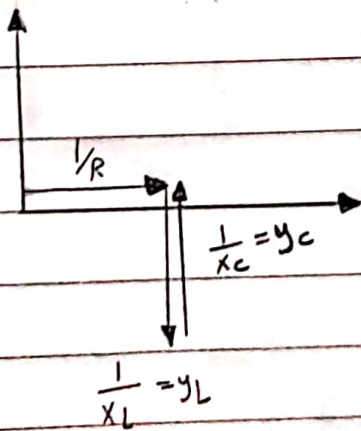 1/R
1/xc = yc
1/XL = yL